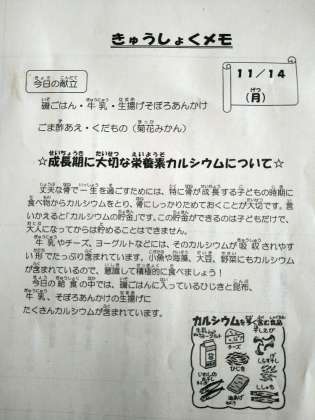 きゅうしょくメモ
今日の献立
11／14
（月）
磯ごはん・牛乳・生揚げそぼろあんかけ
ごま酢あえ・くだもの（菊花みかん）
☆成長期に大切な栄養素カルシウムについて☆
丈夫な骨で一生を過ごすためには、特に骨が成長する子どもの時期に
食べ物からカルシウムをとり、骨にしっかりためておくことが大切です。言
いかえると「カルシウムの貯金」です。この貯金ができるのは子どもだけで、
大人になってからは貯めることはできません。
牛乳やチーズ、ヨーグルトなどには、そのカルシウムが吸収されやす
い形でたっぷり含まれています。小魚や海藻、大豆、野菜にもカルシウム
が含まれているので、意識して積極的に食べましょう！
今日の給食の中では、磯ごはんに入っているひじきと昆布、
牛乳、そぼろあんかけの生揚げに
たくさんカルシウムが含まれています。
カルシウムを多く含む食品
牛乳
ヨーグルト
チーズ
干しえび
しらす干し
ひじき
ししゃも